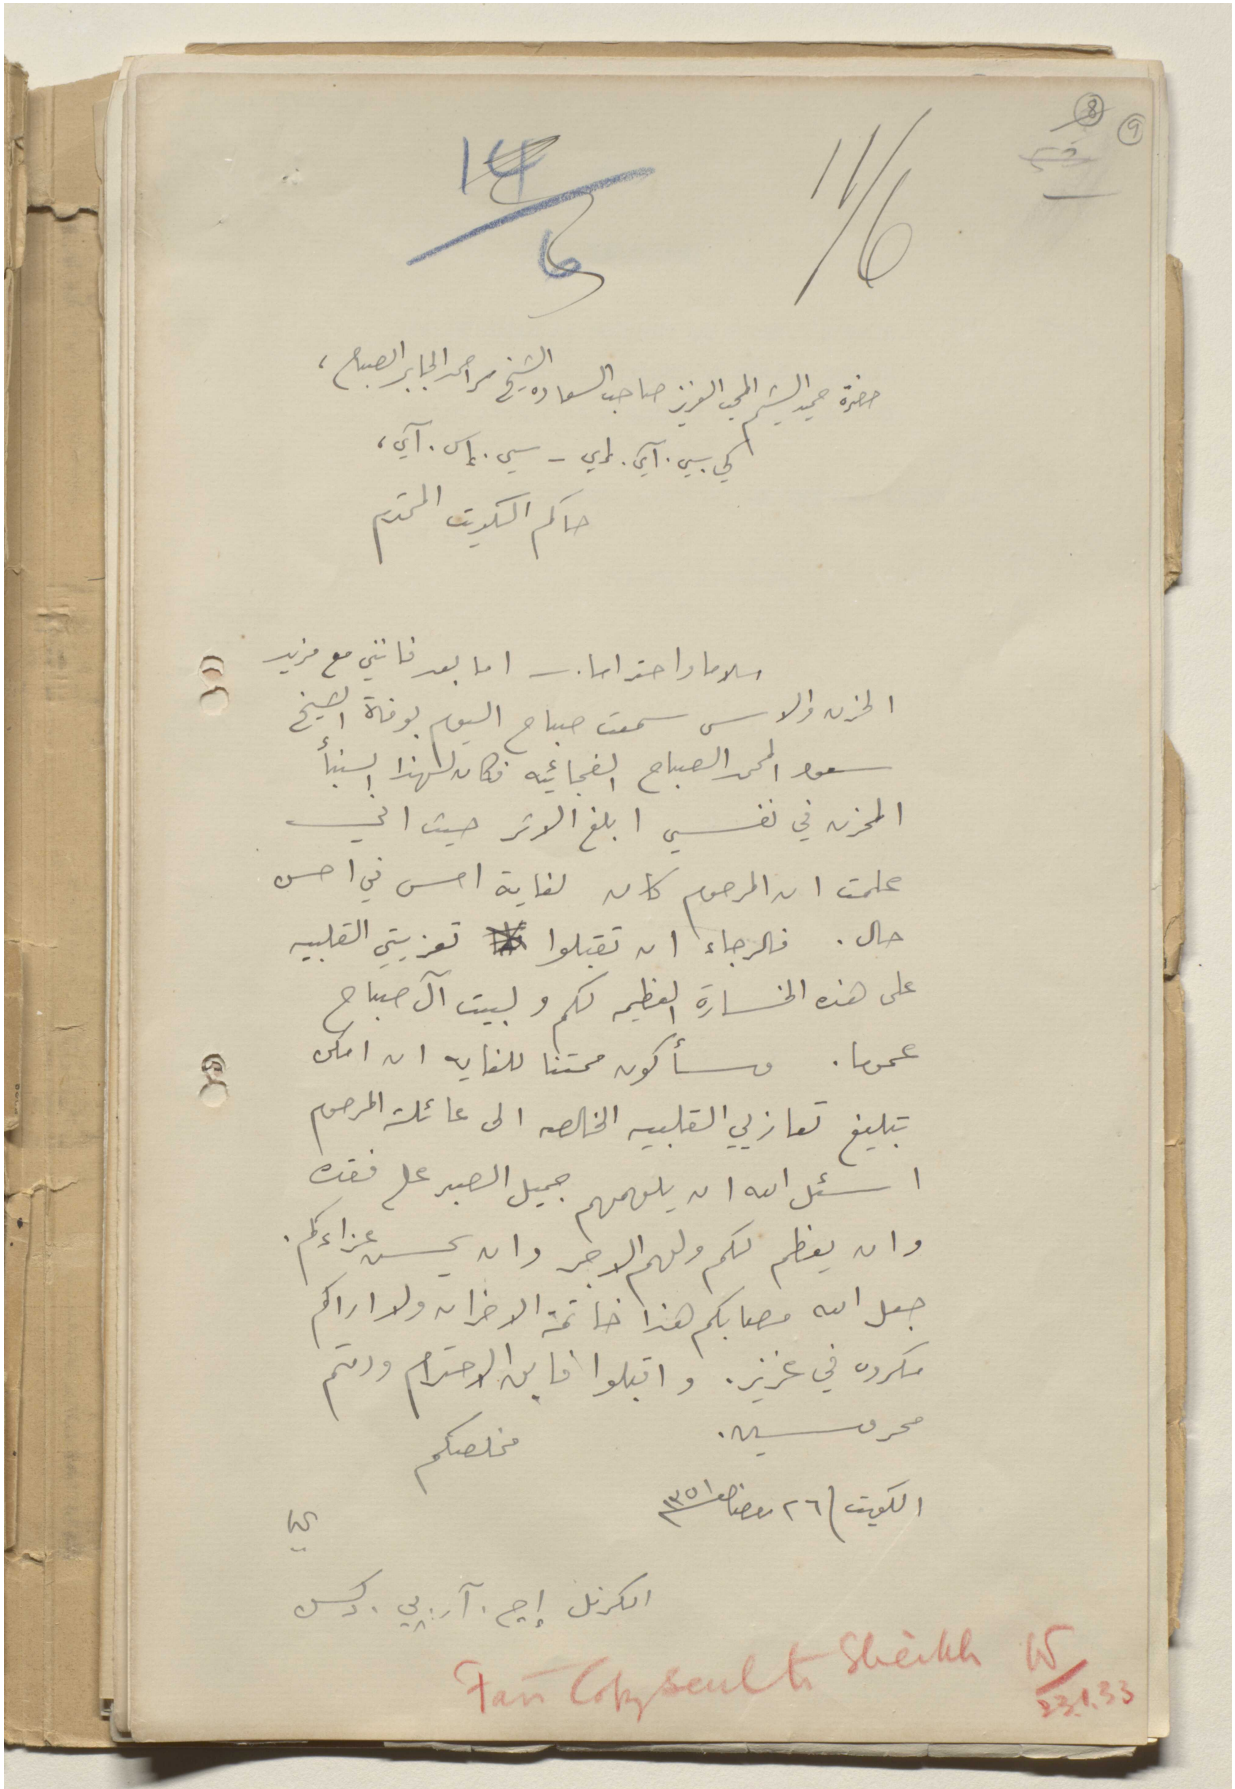 8
9
14/6
11/6
حضرة حميد الشيم المحب العزيز صاحب السعاده الشيخ سر احمد الجابر الصباح ،
كي. سي. آي. إي – سي. إس. آي ،
حاكم الكويت المحترم
سلاما واحتراما. – اما بعد فانني مع مزيد
الحزن والاسى سمعت صباح اليوم بوفاة الشيخ
سعود المحمد الصباح الفجائيه فكان لهذا النبأ
المحزن في نفسي ابلغ الاثر حيث اني
علمت ان المرحوم كان لغاية امس في احسن
حال . فالرجاء ان تقبلوا تعزيتي القلبيه
على هذه الخسارة العظيمه لكم ولبيت آل صباح
عموما . وسأكون ممتنا للغايه ان امكن
تبليغ تعازيي القلبيه الخالصه الى عائلة المرحوم
اسئل الله ان يلهمهم جميل الصبر على فقده
وان يعظم لكم ولهم الاجر وان يحسن عزاءكم .
جعل الله مصابكم هذا خاتمة الاحزان ولا اراكم
مكروه في عزيز . واقبلوا فايق الاحترام ودمتم
محروسين .
مخلصكم
الكويت / ٢٦ رمضان ١٣٥١
الكرنل إچ . آر . پي . دكسن
Fair Copy sent to Sheikh
23.1.33